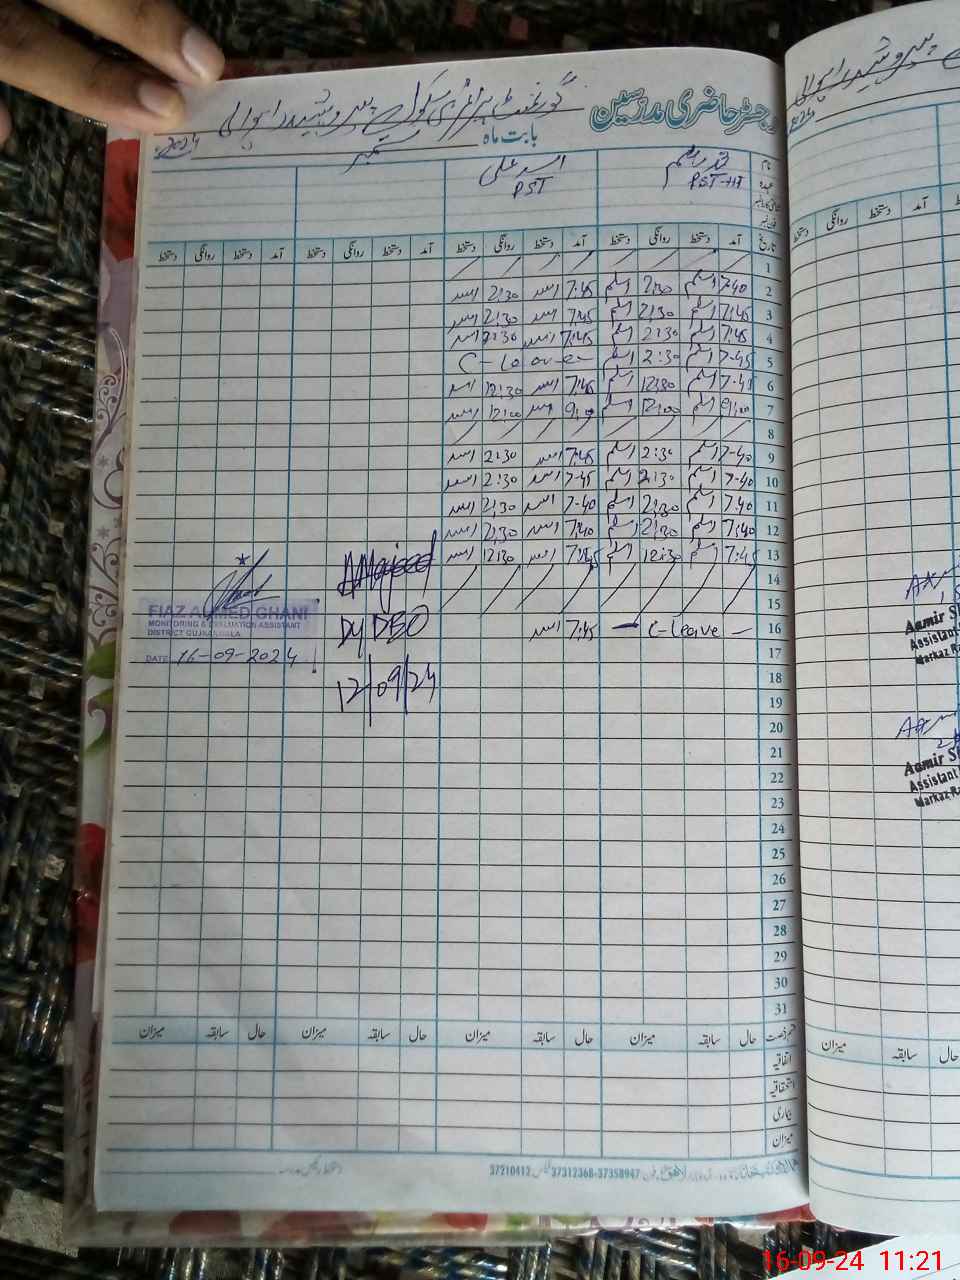 رجسٹر حاضری مدرسین گورنمنٹ پرائمری سکول
بابت ماہ ستمبر 2024
نام محمد اسلم اسد علی
عہدہ PST-HT PST
تاریخ آمد دستخط روانگی دستخط آمد دستخط روانگی دستخط آمد دستخط روانگی دستخط آمد دستخط روانگی دستخط
1
2 7:40 اسلم 2:30 اسلم 7:45 اسد 2:30 اسد
3 7:45 اسلم 2:30 اسلم 7:45 اسد 2:30 اسد
4 7:45 اسلم 2:30 اسلم 7:45 اسد 2:30 اسد
5 7-45 اسلم 2:30 اسلم C-Leave
6 7-45 اسلم 12:30 اسلم 7:45 اسد 12:30 اسد
7 9:00 اسلم 12:00 اسلم 9:00 اسد 12:00 اسد
8
9 7-40 اسلم 2:30 اسلم 7:45 اسد 2:30 اسد
10 7-40 اسلم 2:30 اسلم 7-45 اسد 2:30 اسد
11 7:40 اسلم 2:30 اسلم 7-40 اسد 2:30 اسد
12 7:40 اسلم 2:30 اسلم 7:40 اسد 2:30 اسد
13 7:45 اسلم 12:30 اسلم 7:45 اسد 12:30 اسد
14
15
16 - C-Leave - 7:45 اسد
17
18
19
20
21
22
23
24
25
26
27
28
29
30
31
AMajeed
Dy DEO
12/09/24
FIAZ AHMED GHANI
MONITORING & EVALUATION ASSISTANT
DISTRICT GUJRANWALA
DATE 16-09-2024
قسم رخصت حال سابقہ میزان حال سابقہ میزان حال سابقہ میزان حال سابقہ میزان
اتفاقیہ
استحقاقیہ
بیماری
میزان
37312368-37358947 37210412
2024
دستخط آمد روانگی دستخط
Aamir
Assistant
Markaz
Aamir
Assistant
Markaz
میزان سابقہ حال
16-09-24 11:21